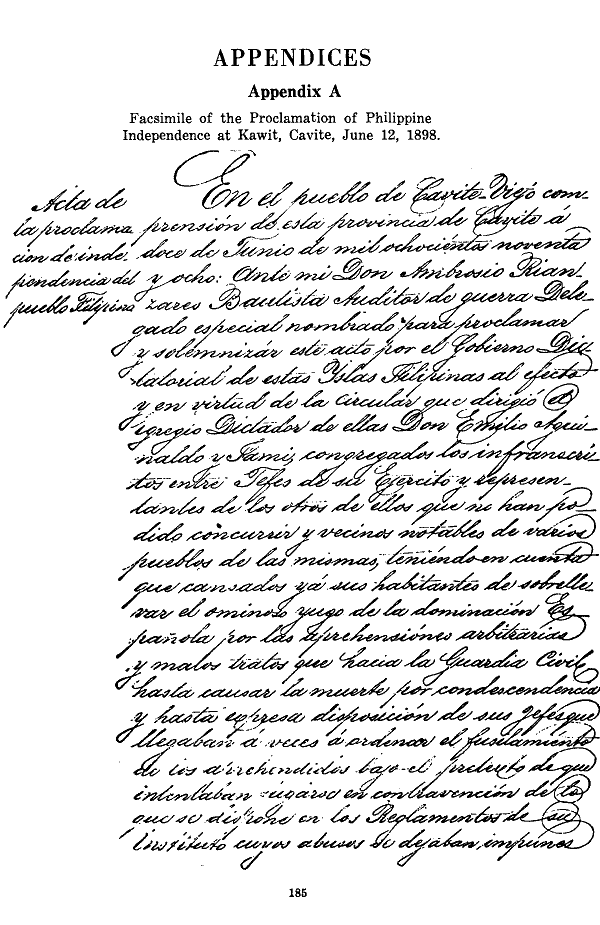 APPENDICES
Appendix A
Facsimile of the Proclamation of Philippine
Independence at Kawit, Cavite, June 12, 1898.
Acta de
la proclama
cion de inde
pendencia del
pueblo Filipino
En el pueblo de Cavite-Viejo com-
prensión de esta provincia de Cavite á
doce de Junio de mil ochocientos noventa
y ocho: Ante mi Don Ambrosio Rian-
zares Bautista Auditor de guerra Dele-
gado especial nombrado para proclamar
y solemnizár este acto por el Gobierno Dic-
tatorial de estas Yslas Filipinas al efecto
y en virtud de la circular que dirigió el
egregio Dictador de ellas Don Emilio Agui-
naldo y Famy, congregados los infranscri-
tos entre Jefes de su Ejército y represen-
tantes de los otros de ellos que no han po-
dido concurrir y vecinos notables de varios
pueblos de las mismas, teniéndo en cuenta
que cansados yá sus habitantes de sobrelle-
var el ominoso yugo de la dominación Es-
pañola por las aprehensiónes arbitrarias
y malos tratos que hacia la Guardia Civil
hasta causar la muerte por condescendencia
y hasta expresa disposición de sus gefes que
llegaban á veces á ordenar el fusilamiento
de los aprehendidos bajo el pretexto de que
intentaban fugarse en contravención de lo
que se dispone en los Reglamentos de su
Instituto cuyos abusos se dejaban impunes
185